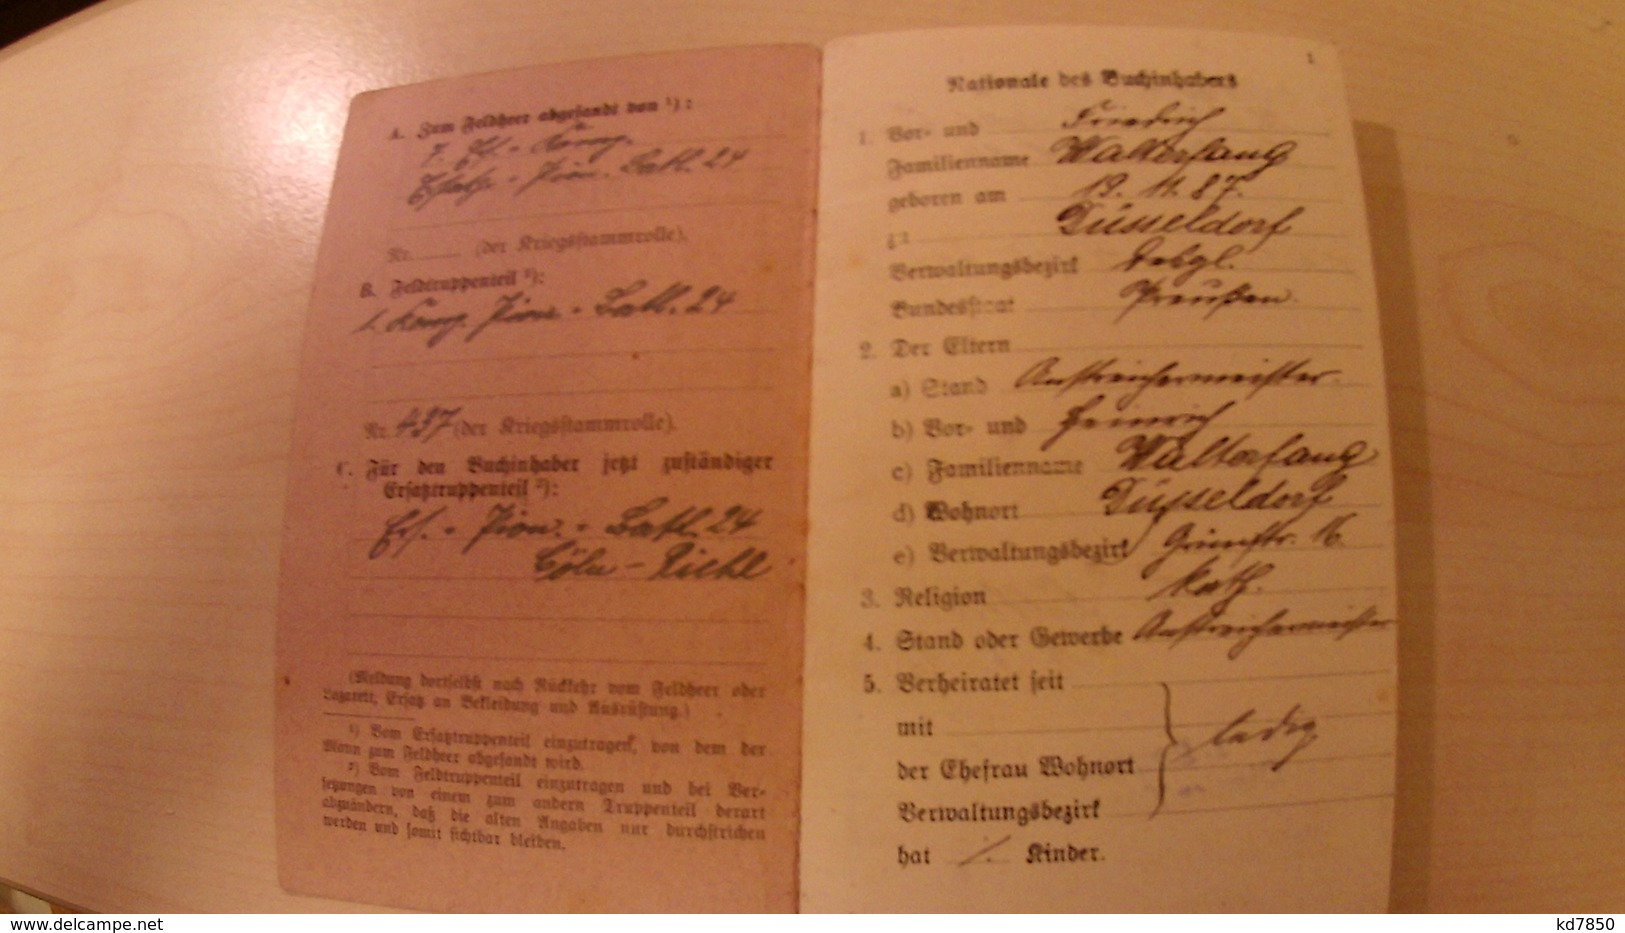 A. Zum Feldheer abgesandt von ¹):
Ers. - Pion. - Batl. 24
Nr. (der Kriegsstammrolle).
B. Feldtruppenteil ²):
Pion. - Batl. 24
Nr. 437 (der Kriegsstammrolle).
C. Für den Buchinhaber jetzt zuständiger
Ersatztruppenteil ²):
Ers. - Pion. - Batl. 24
Cöln - Riehl
(Meldung dortselbst nach Rückkehr vom Feldheer oder
Lazarett, Ersatz an Bekleidung und Ausrüstung.)
¹) Vom Ersatztruppenteil einzutragen, von dem der
Mann zum Feldheer abgesandt wird.
²) Vom Feldtruppenteil einzutragen und bei Ver-
setzungen von einem zum andern Truppenteil derart
abzuändern, daß die alten Angaben nur durchstrichen
werden und somit sichtbar bleiben.
1
Nationale des Buchinhabers
1. Vor- und Friedrich
Familienname Walterfang
geboren am 19. 11. 87.
Düsseldorf
Verwaltungsbezirk desgl.
Bundesstaat Preußen.
2. Der Eltern
a) Stand Anstreichermeister.
b) Vor- und Heinrich
c) Familienname Walterfang
d) Wohnort Düsseldorf
e) Verwaltungsbezirk 16.
3. Religion kath.
4. Stand oder Gewerbe Anstreichermeister
5. Verheiratet seit
mit
ledig
der Ehefrau Wohnort
Verwaltungsbezirk
hat ./. Kinder.
delcampe.net
kd7850